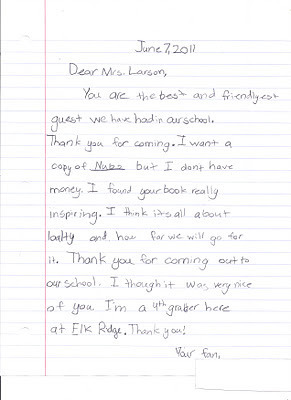 June 7, 2011
Dear Mrs. Larson,
You are the best and friendlyest
guest we have had in our school.
Thank you for coming. I want a
copy of Nubs but I dont have
money. I found your book really
inspiring. I think its all about
loalty and how far we will go for
it. Thank you for coming out to
our school. I thought it was very nice
of you I'm a 4th grader here
at Elk Ridge. Thank you!
Your fan,